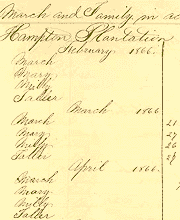 March and Family, in ac
Hampton Plantation
February 1866.
March
Mary
Milly
Sadler
March 1866
March 21
Mary 27
Milly 26
Saller
April 1866.
March
Mary
Milly
Saller